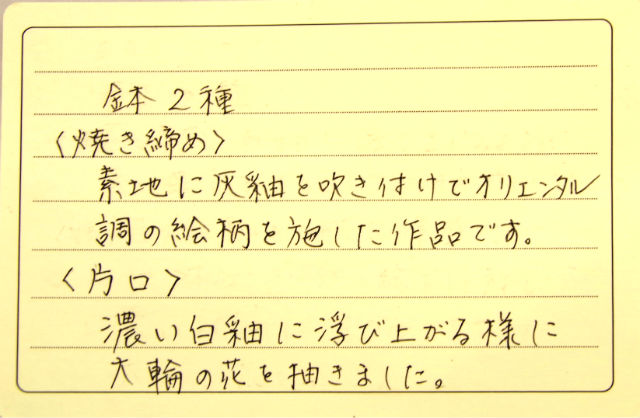 鉢 2種
〈焼き締め〉
素地に灰釉を吹き付けてオリエンタル
調の絵柄を施した作品です。
〈片口〉
濃い白釉に浮び上がる様に
大輪の花を抽きました。